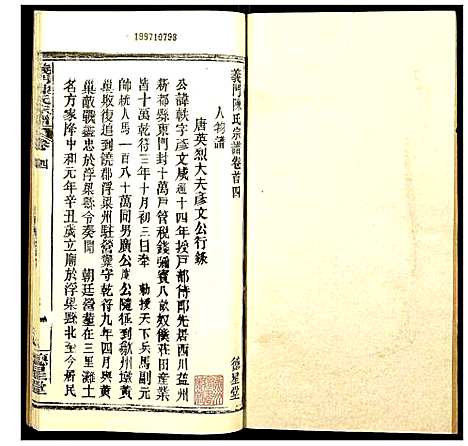 199710798
義門陳氏宗譜卷首四
德星堂
人物譜
唐英烈大夫彥文公行錄
公諱軼字彥文咸通十四年授戶部侍郎先居西川益州
新都縣東門封十萬戶管稅錢彌賓八畝奴僕莊田産業
皆十萬乾符三年十月初三日奉 勅授天下兵馬副元
帥統人馬一百八十萬同男廣公度公隨征到歙州壇黃
巢敗復追到饒郡浮梁州駐營紮守乾符九年四月與黃
巢敵戰盡忠於浮梁縣令奏聞 朝廷營塟在三里灘土
名方家降中和元年辛丑歲立廟於浮梁縣北至今居民